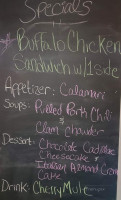 Specials
* Buffalo Chicken
Sandwich w/1 side
Appetizer: Calamari
Soups: Pulled Pork Chili
&
Clam Chowder
Dessert: Chocolate Cadillac
Cheesecake &
Italian Almond Crem
Cake
Drink: Cherry Mule